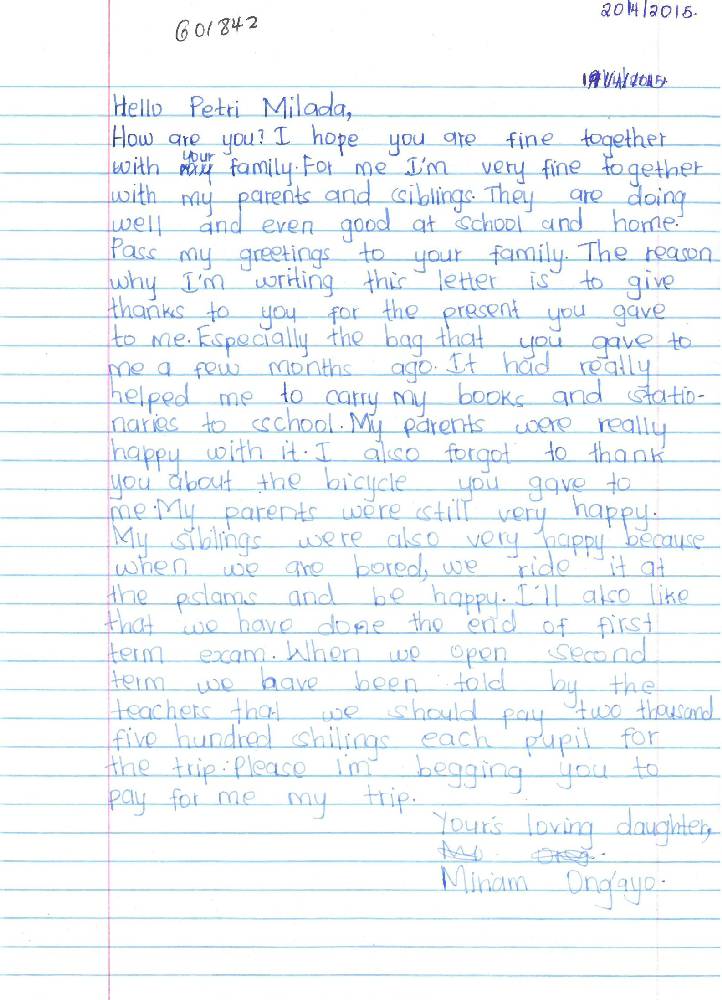 601842
20/4/2015.
Hello Petri Milada,
How are you? I hope you are fine together
with your family. For me I'm very fine together
with my parents and siblings. They are doing
well and even good at school and home.
Pass my greetings to your family. The reason
why I'm writing this letter is to give
thanks to you for the present you gave
to me. Especially the bag that you gave to
me a few months ago. It had really
helped me to carry my books and statio-
naries to school. My parents were really
happy with it. I also forgot to thank
you about the bicycle you gave to
me. My parents were still very happy.
My siblings were also very happy because
when we are bored, we ride it at
the pslams and be happy. I'll also like
that we have done the end of first
term exam. When we open second
term we have been told by the
teachers that we should pay two thousand
five hundred shilings each pupil for
the trip. Please i'm begging you to
pay for me my trip.
Your's loving daughter,
Miriam Ong'ayo.